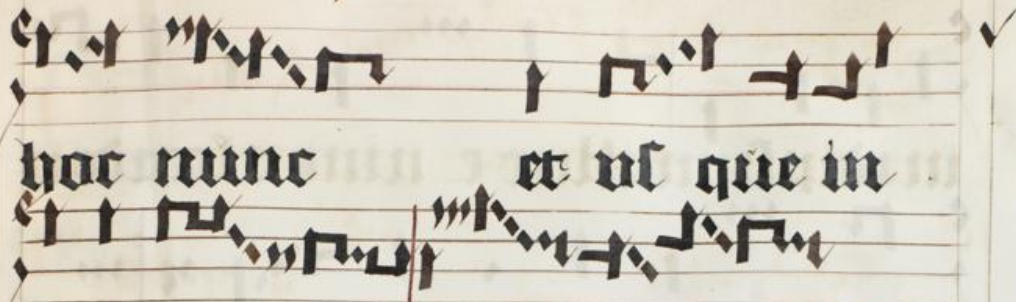 hoc nunc et us que in